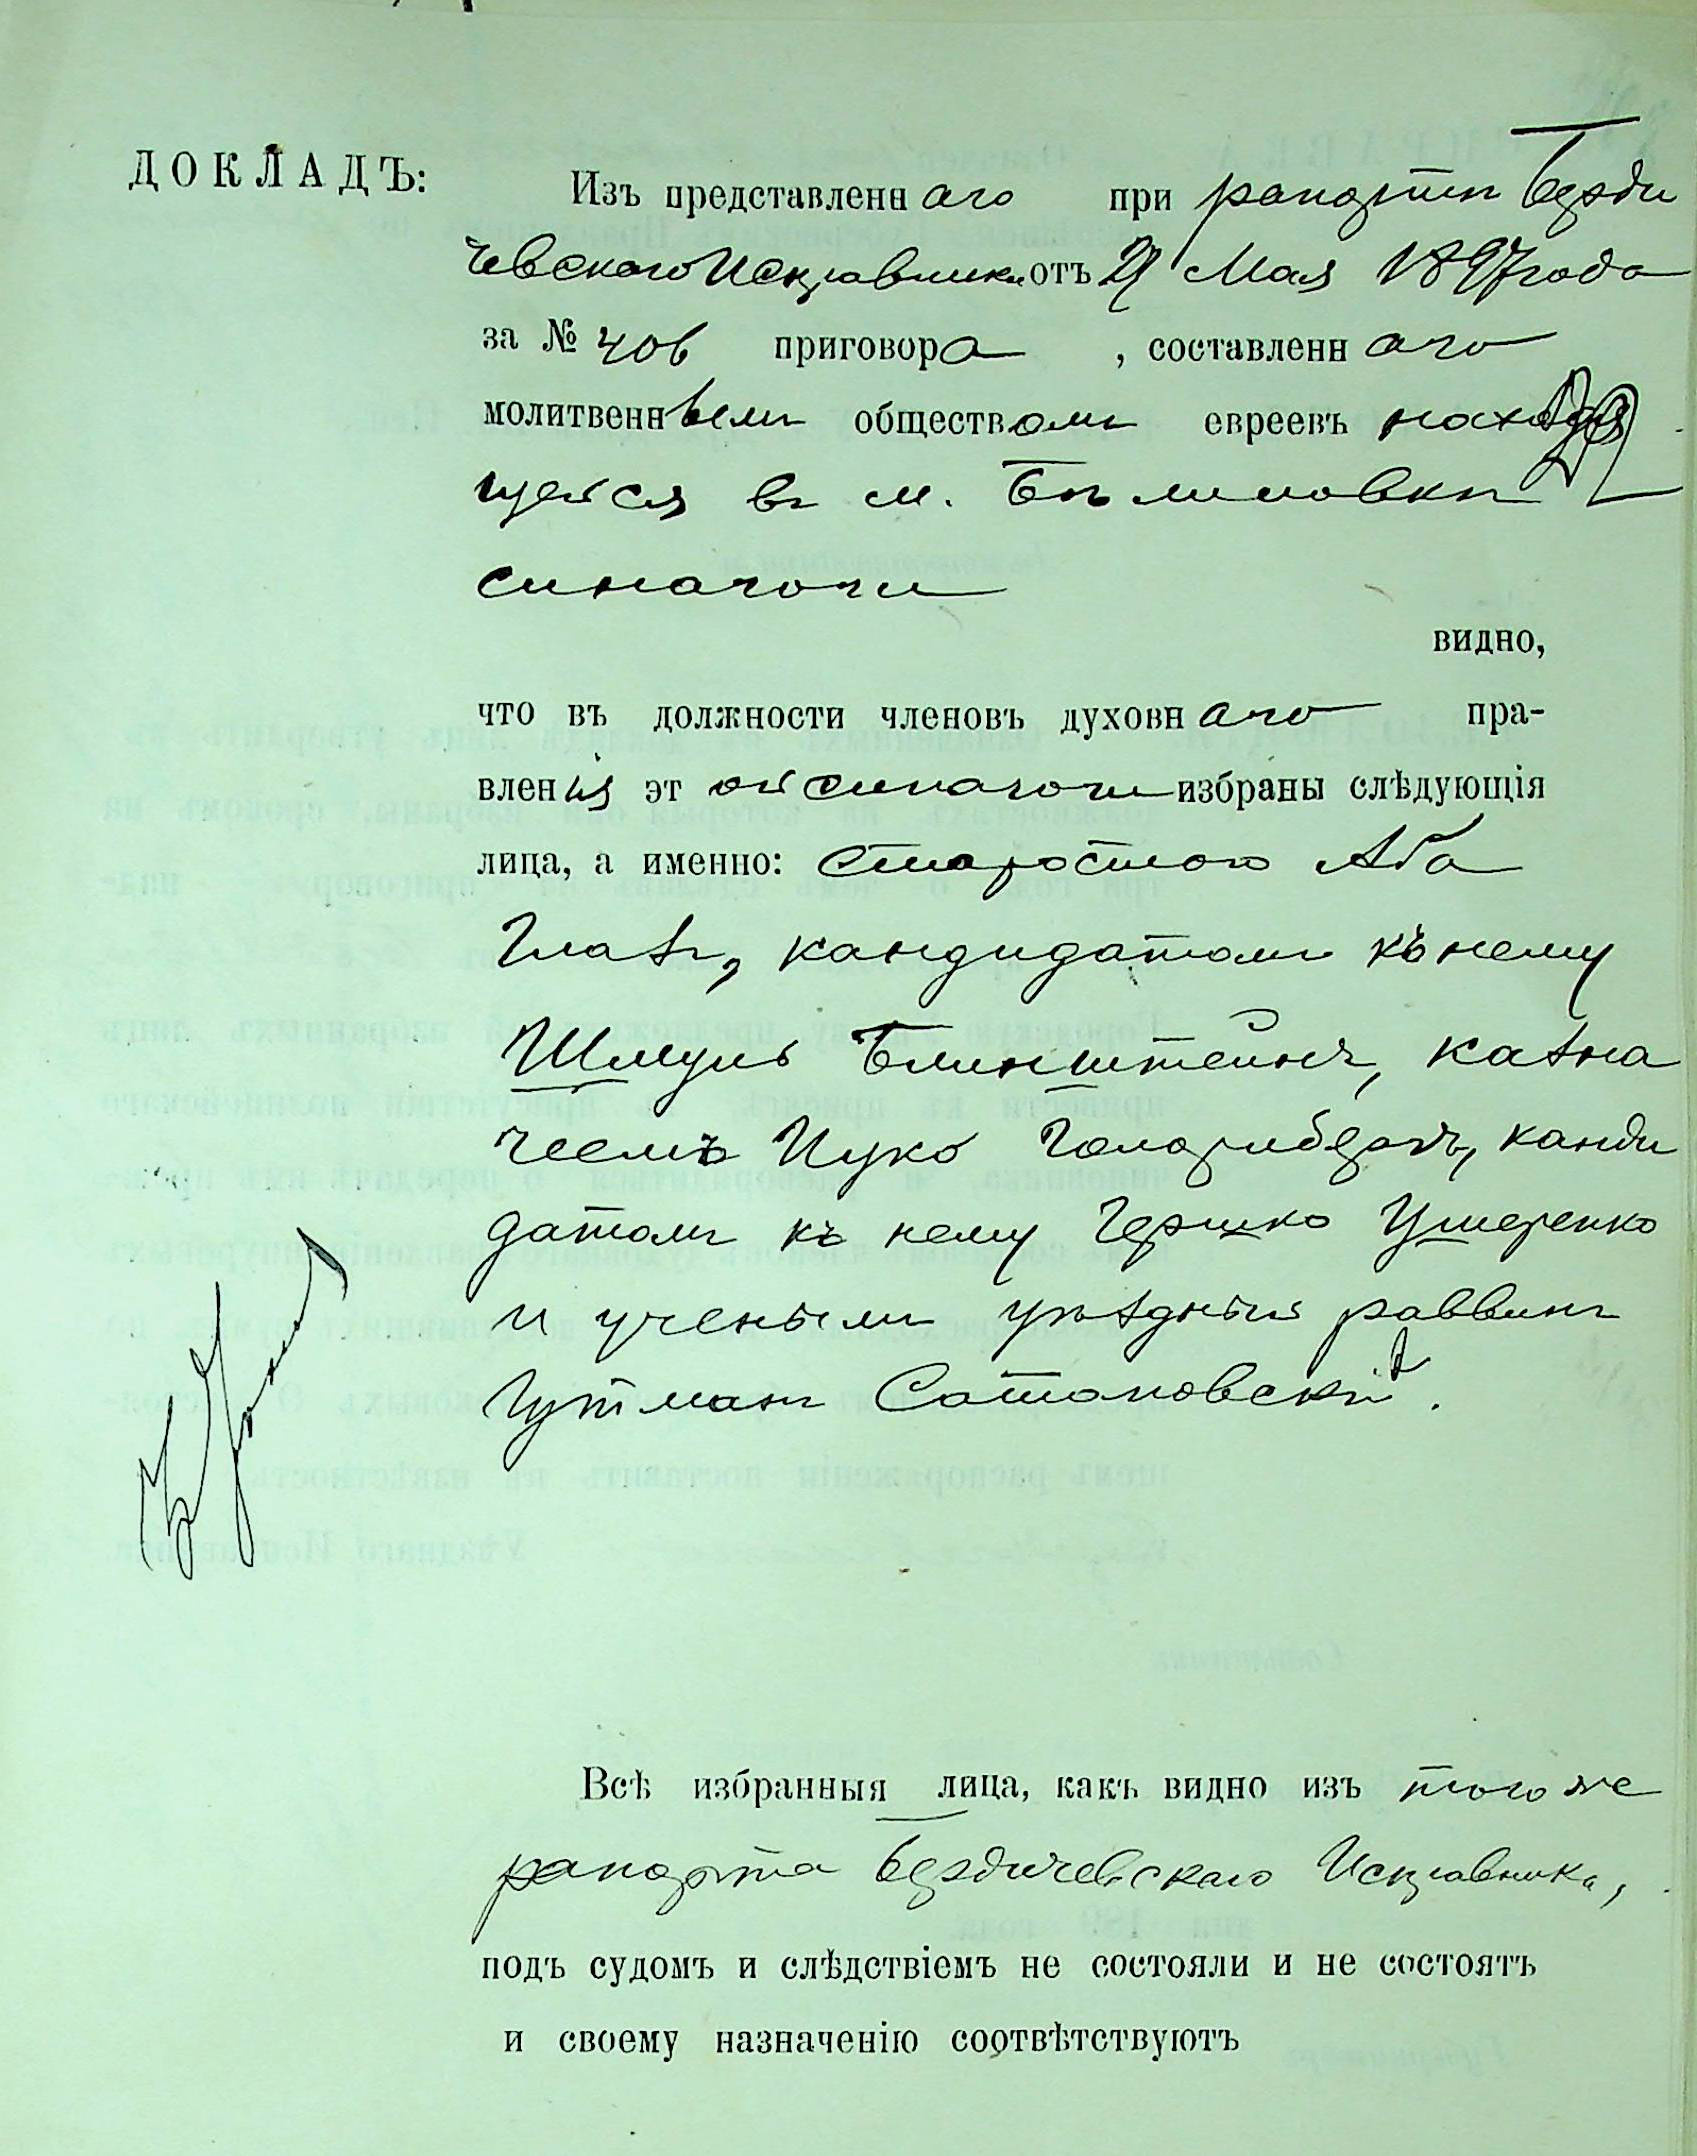 ДОКЛАДЪ:
Изъ представленнаго при рапортѣ Берди
чевскаго Исправника отъ 21 Мая 1897 года
за № 406 приговора, составленнаго
молитвеннымъ обществомъ евреевъ находя
щейся въ м. Бѣлиловкѣ
синагоги
видно,
что въ должности членовъ духовнаго пра-
вленія этой синагоги избраны слѣдующія
лица, а именно: старостою Аба
Глазъ, кандидатомъ къ нему
Шмуль Блинштейнъ, казна
чеемъ Ицко, канди
датомъ къ нему Гершко Ушеренко
и ученымъ уѣздный раввинъ
Гутманъ Сатановскій.
Всѣ избранныя лица, какъ видно изъ того же
рапорта Бердичевскаго Исправника,
подъ судомъ и слѣдствіемъ не состояли и не состоятъ
и своему назначенію соотвѣтствуютъ